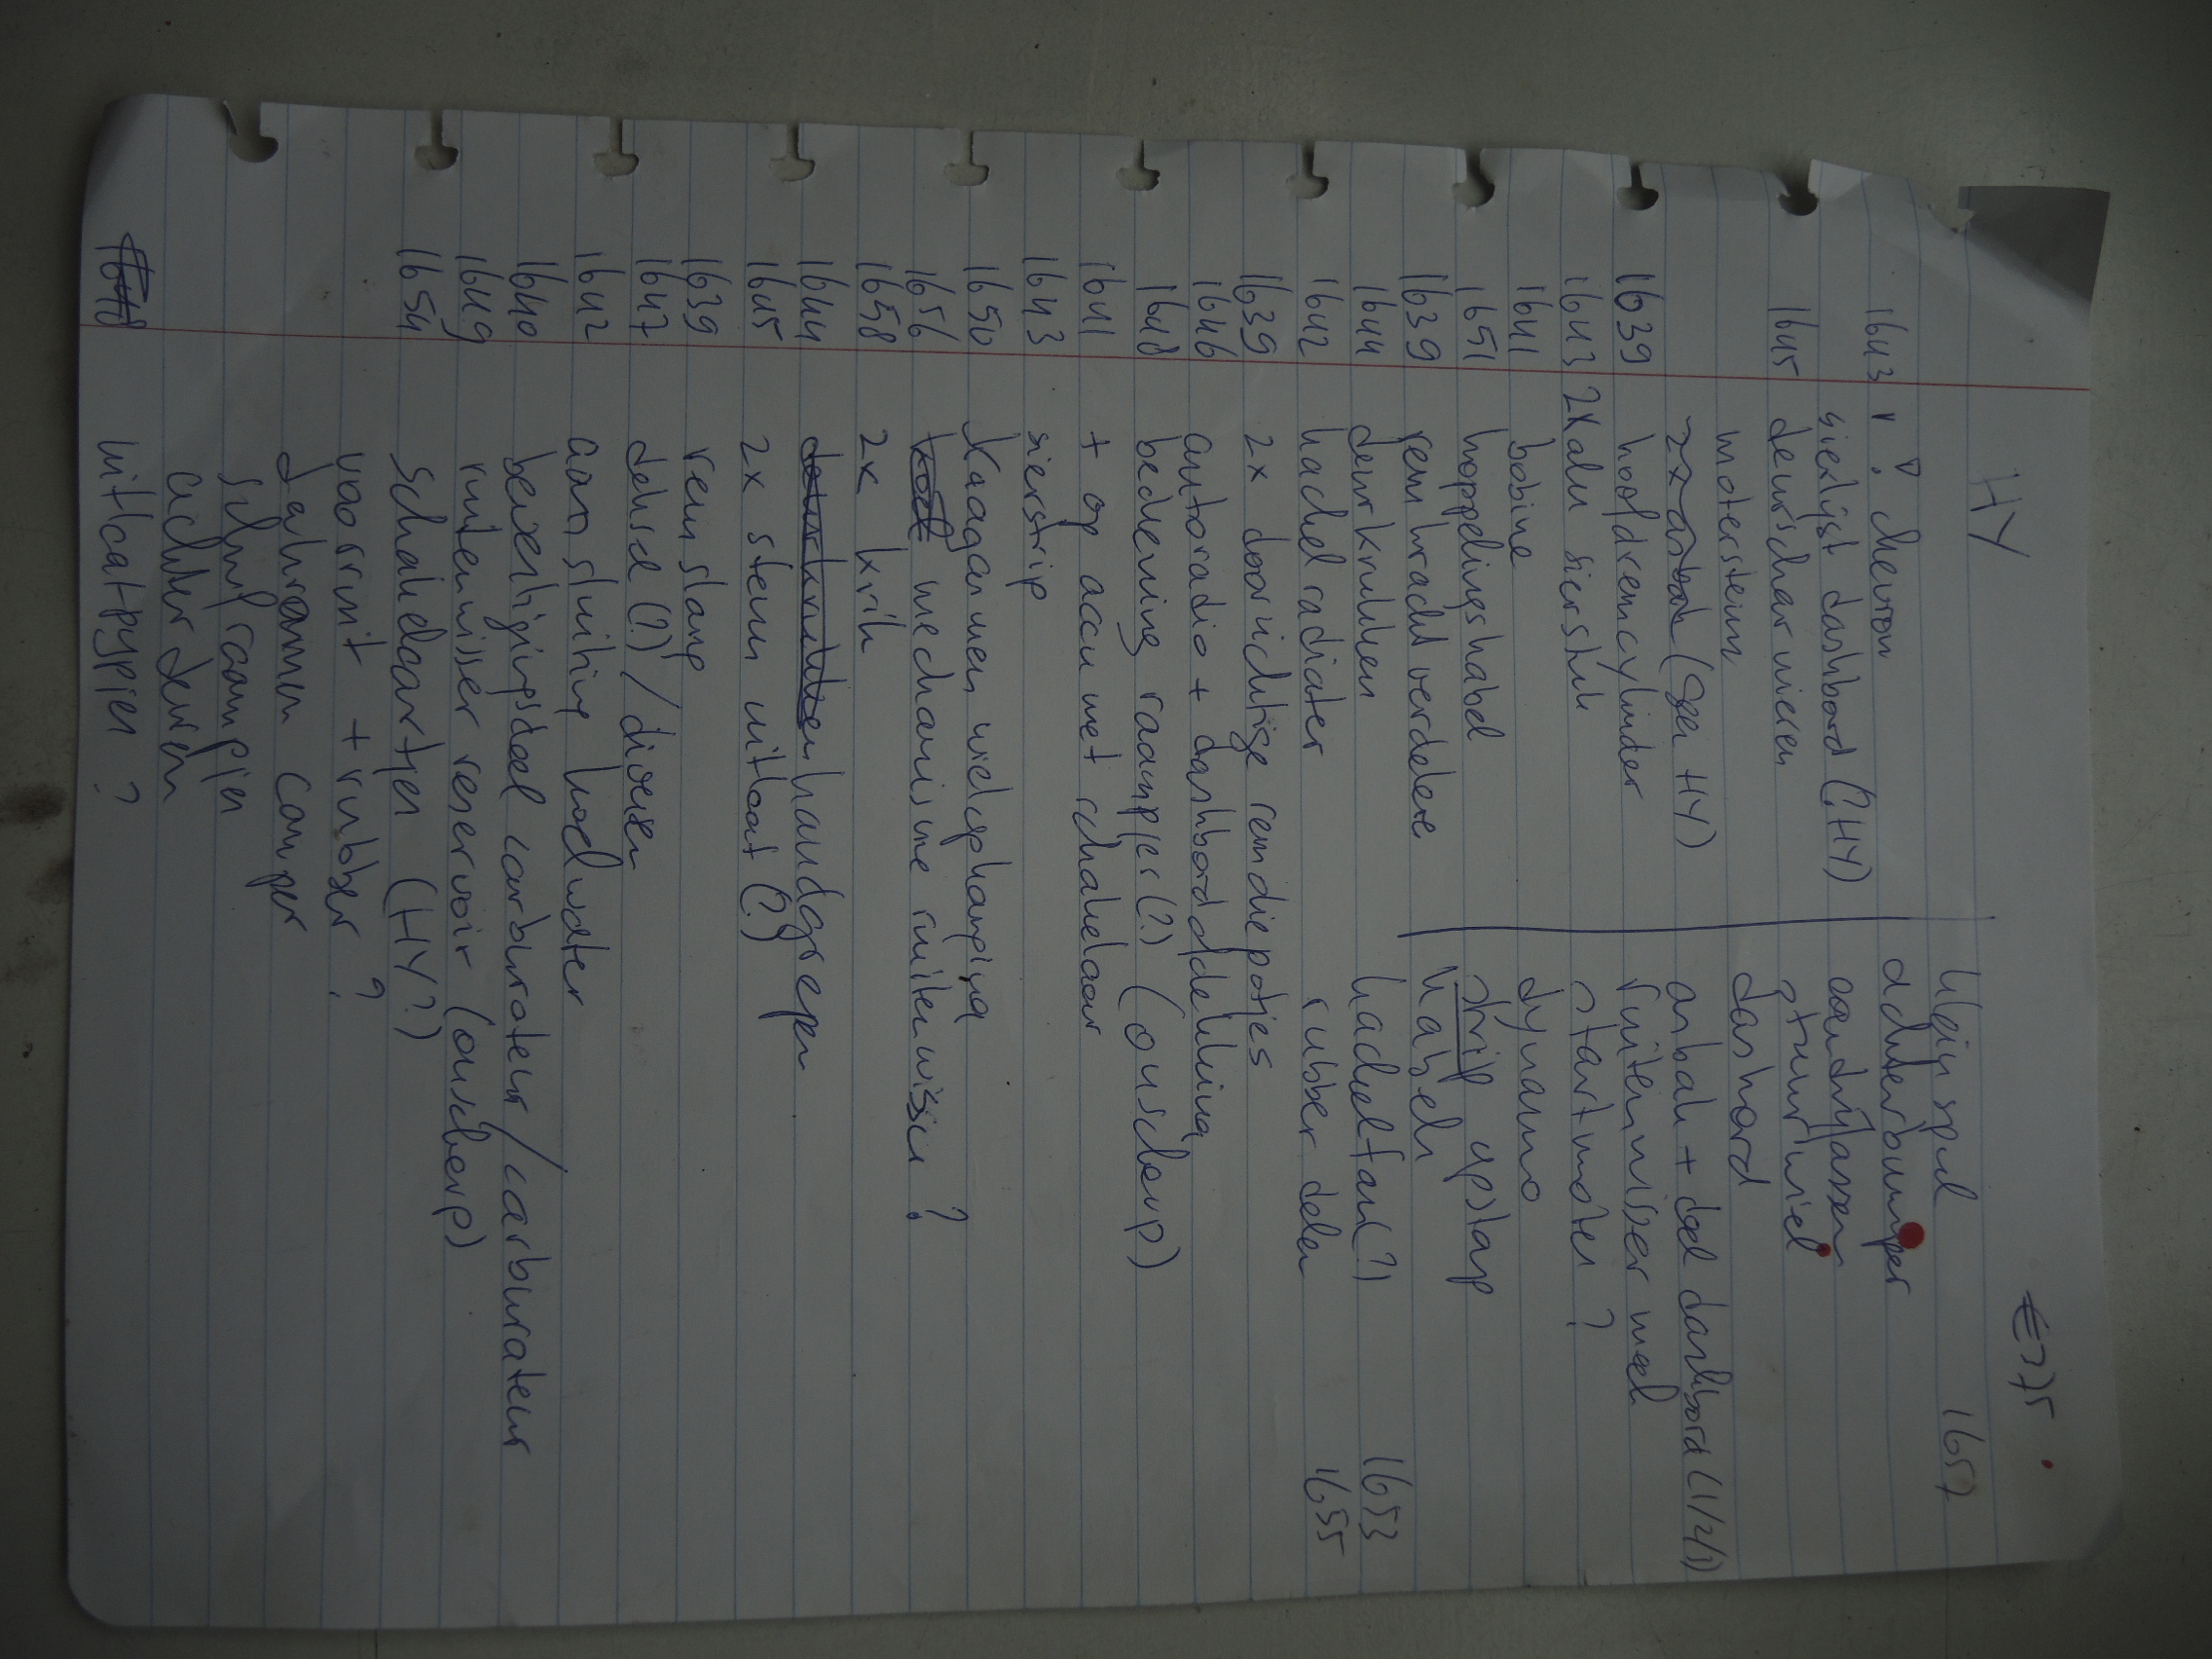 HY
€275.
1643 v. chevron
sierlijst dashbord (?HY)
1645 deurscharnieren
motorsteun
2x asbak (geen HY)
1639 hoofdremcylinder
1643 2x alu sierstuk
1641 bobine
1651 koppelingskabel
1639 remkracht verdeler
1644 deurkrukken
1642 kachel radiater
1639 2x doorzichtige remdiepotjes
1646 autoradio + dashbord
1648 bediening raampjes(?) (ouscheup)
1641 + op accu met schakelaar
1643 sierstrip
1650 Xaagarmen wielophanging
1656 mechanisme ruitenwisser?
1658 2x krik
1644 handgrepen
1645 2x steun uitlaat(?)
1639 remslang
1647 deksel(?) / diversen
1642 aansluiting koelwater
1640 bevestigingsdeel carburateur/carburateur
1649 ruitenwisser reservoir (ouscherp)
1654 schakelaartjes (HY?)
voorruit + rubber?
dakraam camper
schuifraampjes
achterdeuren
1648 uitlaatpijpjes?
Klein spul 1657
achterbumper
aandrijfassen
stuurwiel
dashbord
asbak + deel dashbord (1/2/1)
ruitenwisser mech
startmoter?
dynamo
strip opstap
Kabels
kachelfan(?) 1653
rubber delen 1655